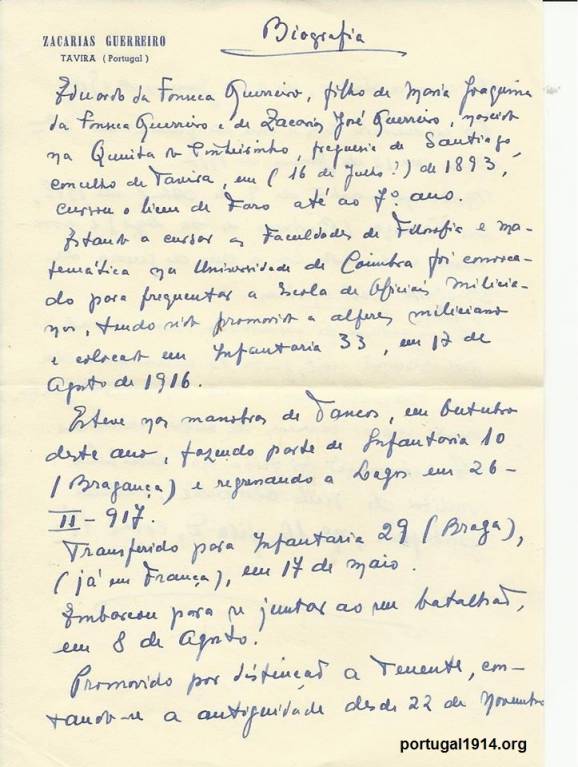 ZACARIAS GUERREIRO
TAVIRA (Portugal)
Biografia
Eduardo da Fonseca Guerreiro, filho de Maria Joaquina
da Fonseca Guerreiro e de Zacarias José Guerreiro, nasceu
na Quinta do Pinheirinho, freguesia de Santiago,
concelho de Tavira, em (16 de Julho?) de 1893,
cursou o liceu de Faro até ao 7º ano.
Estando a cursar as Faculdades de Filosofia e Ma-
temática na Universidade de Coimbra foi convoca-
do para frequentar a Escola de Oficiais Milicia-
nos, tendo sido promovido a alferes miliciano
e colocado em Infantaria 33, em 17 de
Agosto de 1916.
Esteve nas manobras de Tancos, em Outubro
deste ano, fazendo parte de Infantaria 10
(Bragança) e regressando a Lagos em 26-
II-917.
Transferido para Infantaria 29 (Braga),
(já em França), em 17 de maio.
Embarcou para se juntar ao seu batalhão,
em 8 de Agosto.
Promovido por distinção a Tenente, con-
tando-se a antiguidade desde 22 de Novembro
portugal1914.org